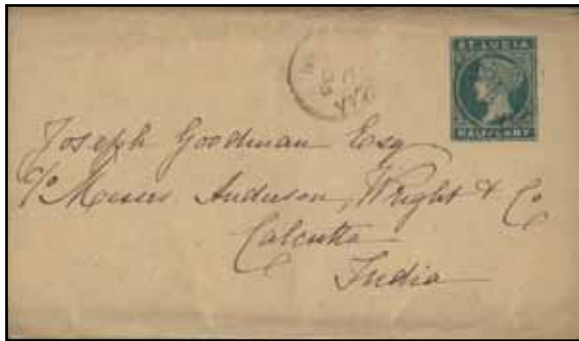 ST LUCIA
HALFPENNY
Joseph Goodman Esq
c/o Messrs Anderson, Wright & Co
Calcutta
India